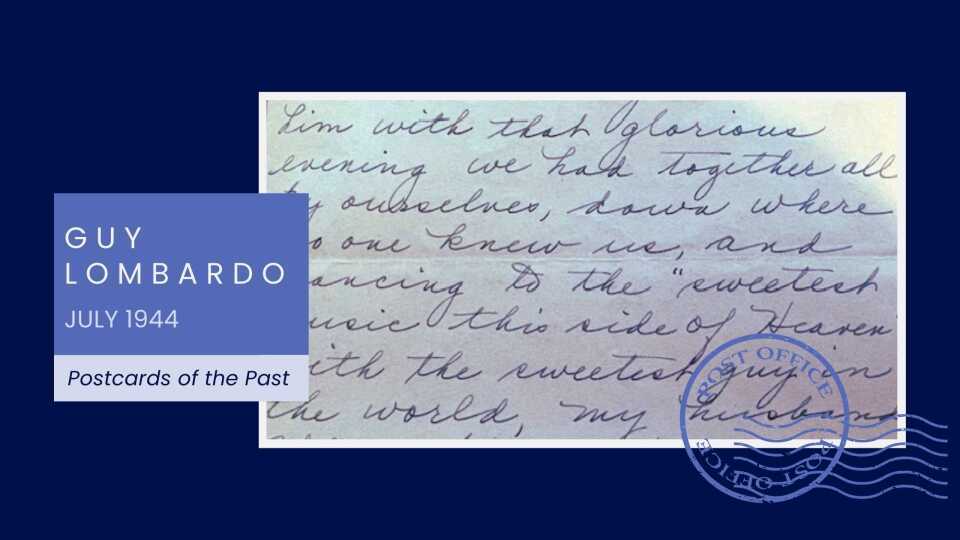 GUY
LOMBARDO
JULY 1944
Postcards of the Past
him with that glorious
evening we had together all
by ourselves, down where
no one knew us, and
dancing to the "sweetest
music this side of Heaven
with the sweetest guy in
the world, my husband
POST OFFICE
POST OFFICE